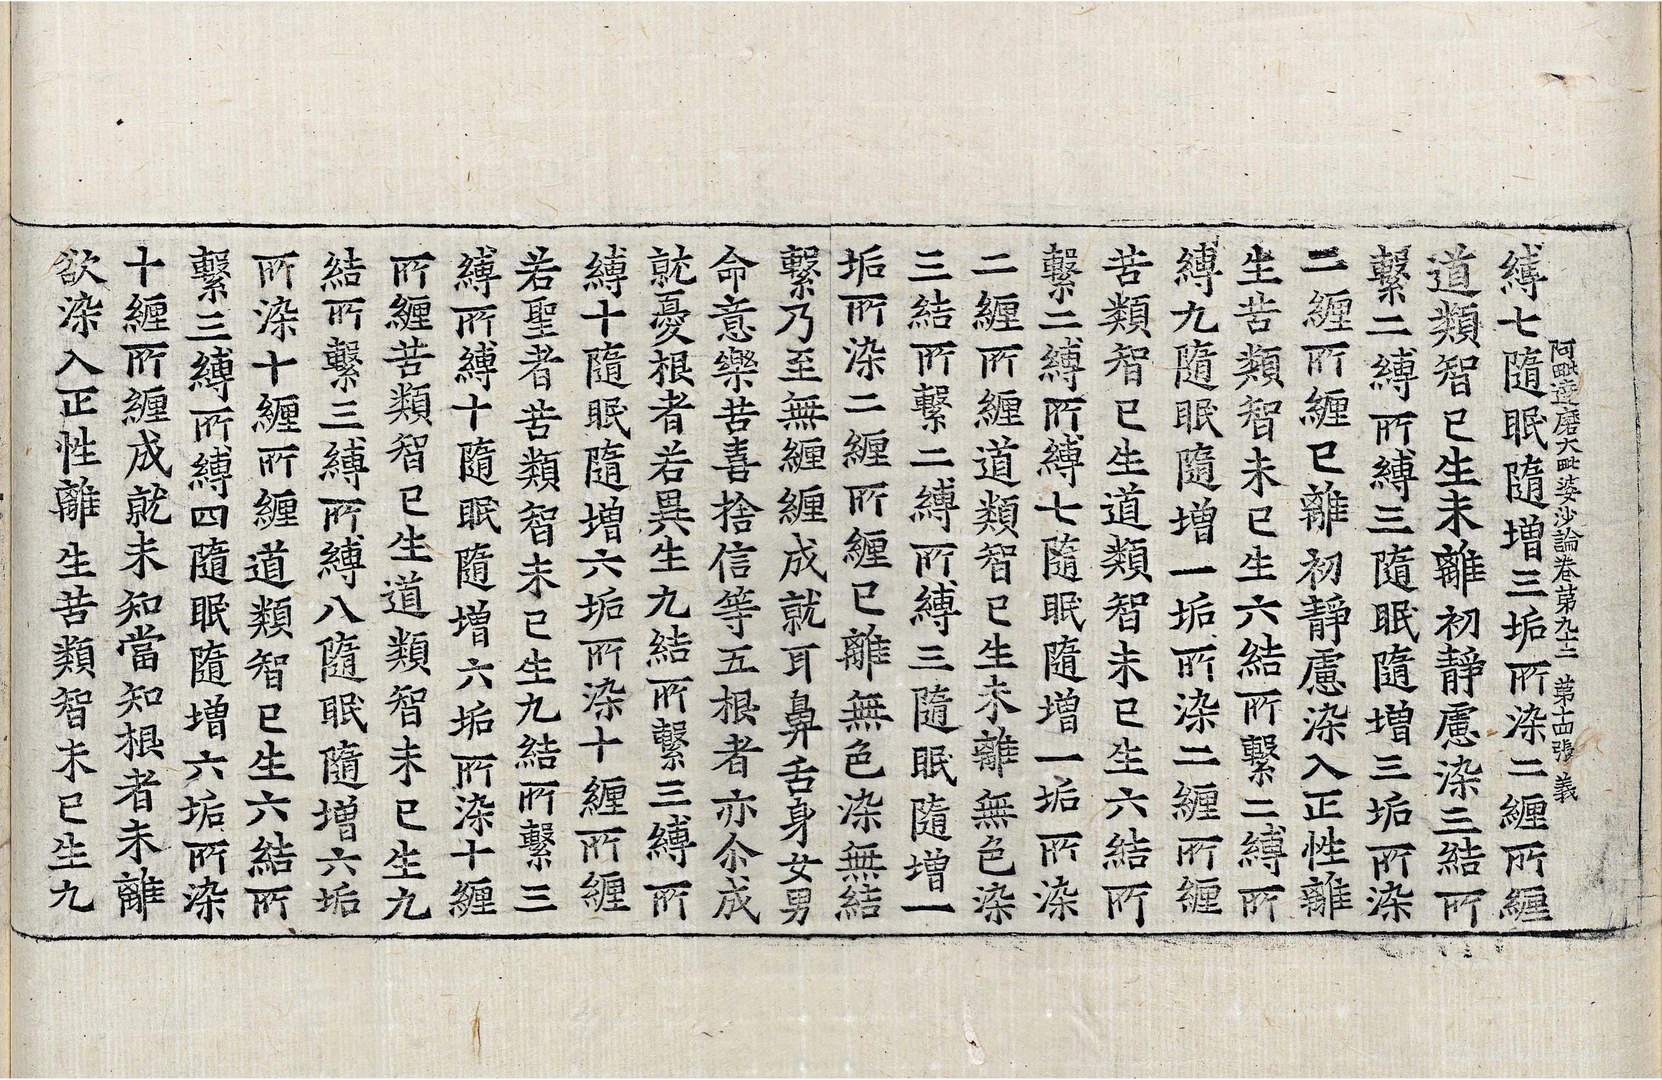 阿毗達磨大毗婆沙論卷苐九十二 苐十四張 義
縛七隨眠隨增三垢所染二纏所纏
道類智已生未離初靜慮染三結所
繫二縛所縛三隨眠隨增三垢所染
二纏所纏已離初靜慮染入正性離
生苦類智未已生六結所繫二縛所
縛九隨眠隨增一垢所染二纏所纏
苦類智已生道類智未已生六結所
繫二縛所縛七隨眠隨增一垢所染
二纏所纏道類智已生未離無色染
三結所繫二縛所縛三隨眠隨增一
垢所染二纏所纏已離無色染無結
繫乃至無纏纏成就耳鼻舌身女男
命意樂苦喜捨信等五根者亦尒成
就憂根者若異生九結所繫三縛所
縛十隨眠隨增六垢所染十纏所纏
若聖者苦類智未已生九結所繫三
縛所縛十隨眠隨增六垢所染十纏
所纏苦類智已生道類智未已生九
結所繫三縛所縛八隨眠隨增六垢
所染十纏所纏道類智已生六結所
繫三縛所縛四隨眠隨增六垢所染
十纏所纏成就未知當知根者未離
欲染入正性離生苦類智未已生九